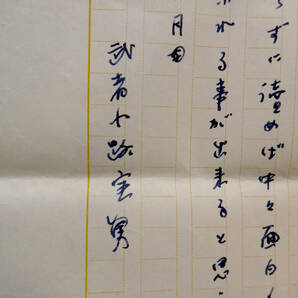 らずに読めば中々面白く
れる事が出来ると思い
月日
武者小路実篤